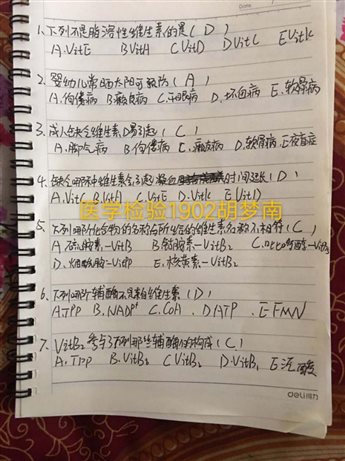 1、下列不是脂溶性维生素的是(D)
A.VitE B.VitA C.VitD D.VitC E.Vitk
2、婴幼儿常晒太阳可预防(A)
A.佝偻病 B.癞皮病 C.干眼病 D.坏血病 E.软骨病
3、成人缺乏维生素D易引起(C)
A.脚气病 B.佝偻病 C.癞皮病 D.软骨病 E.夜盲症
4、缺乏哪种维生素会引起凝血时间延长(D)
A.VitC B.VitA C.VitE D.Vitk E.VitD
医学检验1902胡梦南
5、下列哪个化合物的名称与所给的维生素名称不相符(C)
A.硫胺素-VitB B.核黄素-VitB₂ C.-VitB₃
D.烟酰胺-Vitpp E.核黄素-VitB₂
6、下列哪个辅酶不是来自维生素(D)
A.TPP B.NADP⁺ C.CoA D.ATP E.FMN
7、VitB₂参与了下列哪些辅酶的构成(C)
A.TPP B.VitB₃ C.VitB₂ D.VitB₁ E.泛酸
deli得力